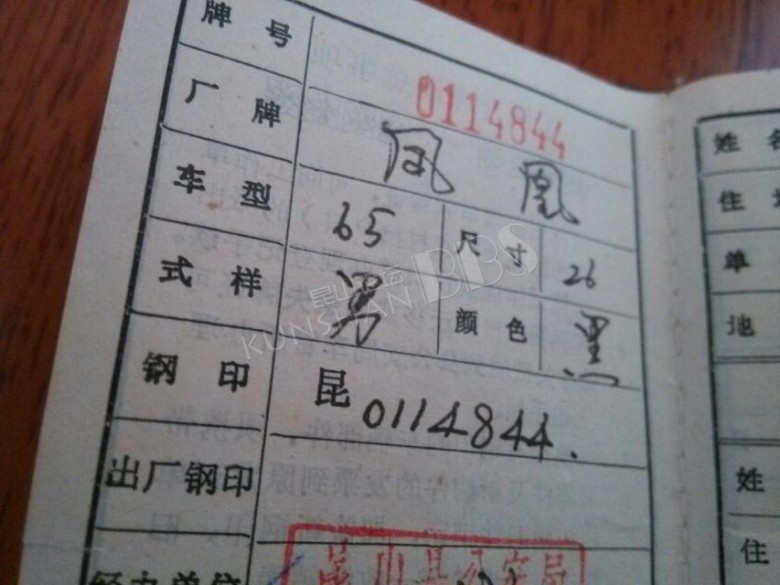 牌号 0114844
厂牌 凤凰
车型 65 尺寸 26
式样 男 颜色 黑
钢印 昆0114844.
出厂钢印
经办单位
昆山县公安局
姓名
住
单
地
姓
住
昆山论坛
KUNSHAN BBS